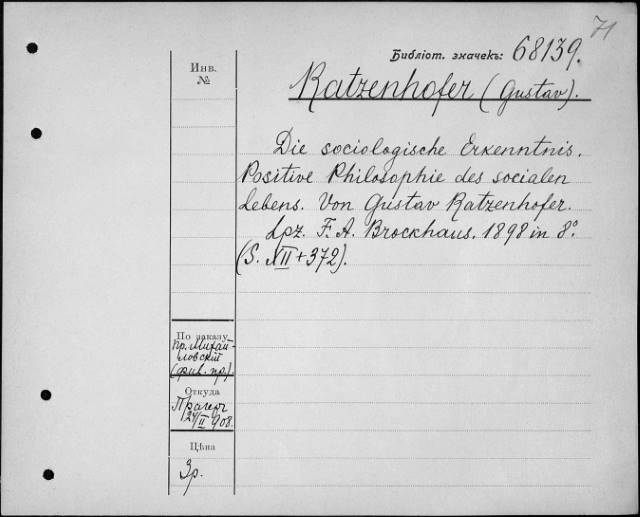 71
Библіот. значекъ: 68139.
Инв.
№
Ratzenhofer (Gustav).
Die sociologische Erkenntnis.
Positive Philosophie des socialen
Lebens. Von Gustav Ratzenhofer.
Lpz. F. A. Brockhaus. 1898 in 8º
(S. XII + 372).
По заказу
Пр. Михай-
ловскій
Откуда
Прагеръ
24/II 908.
Цѣна
3р.